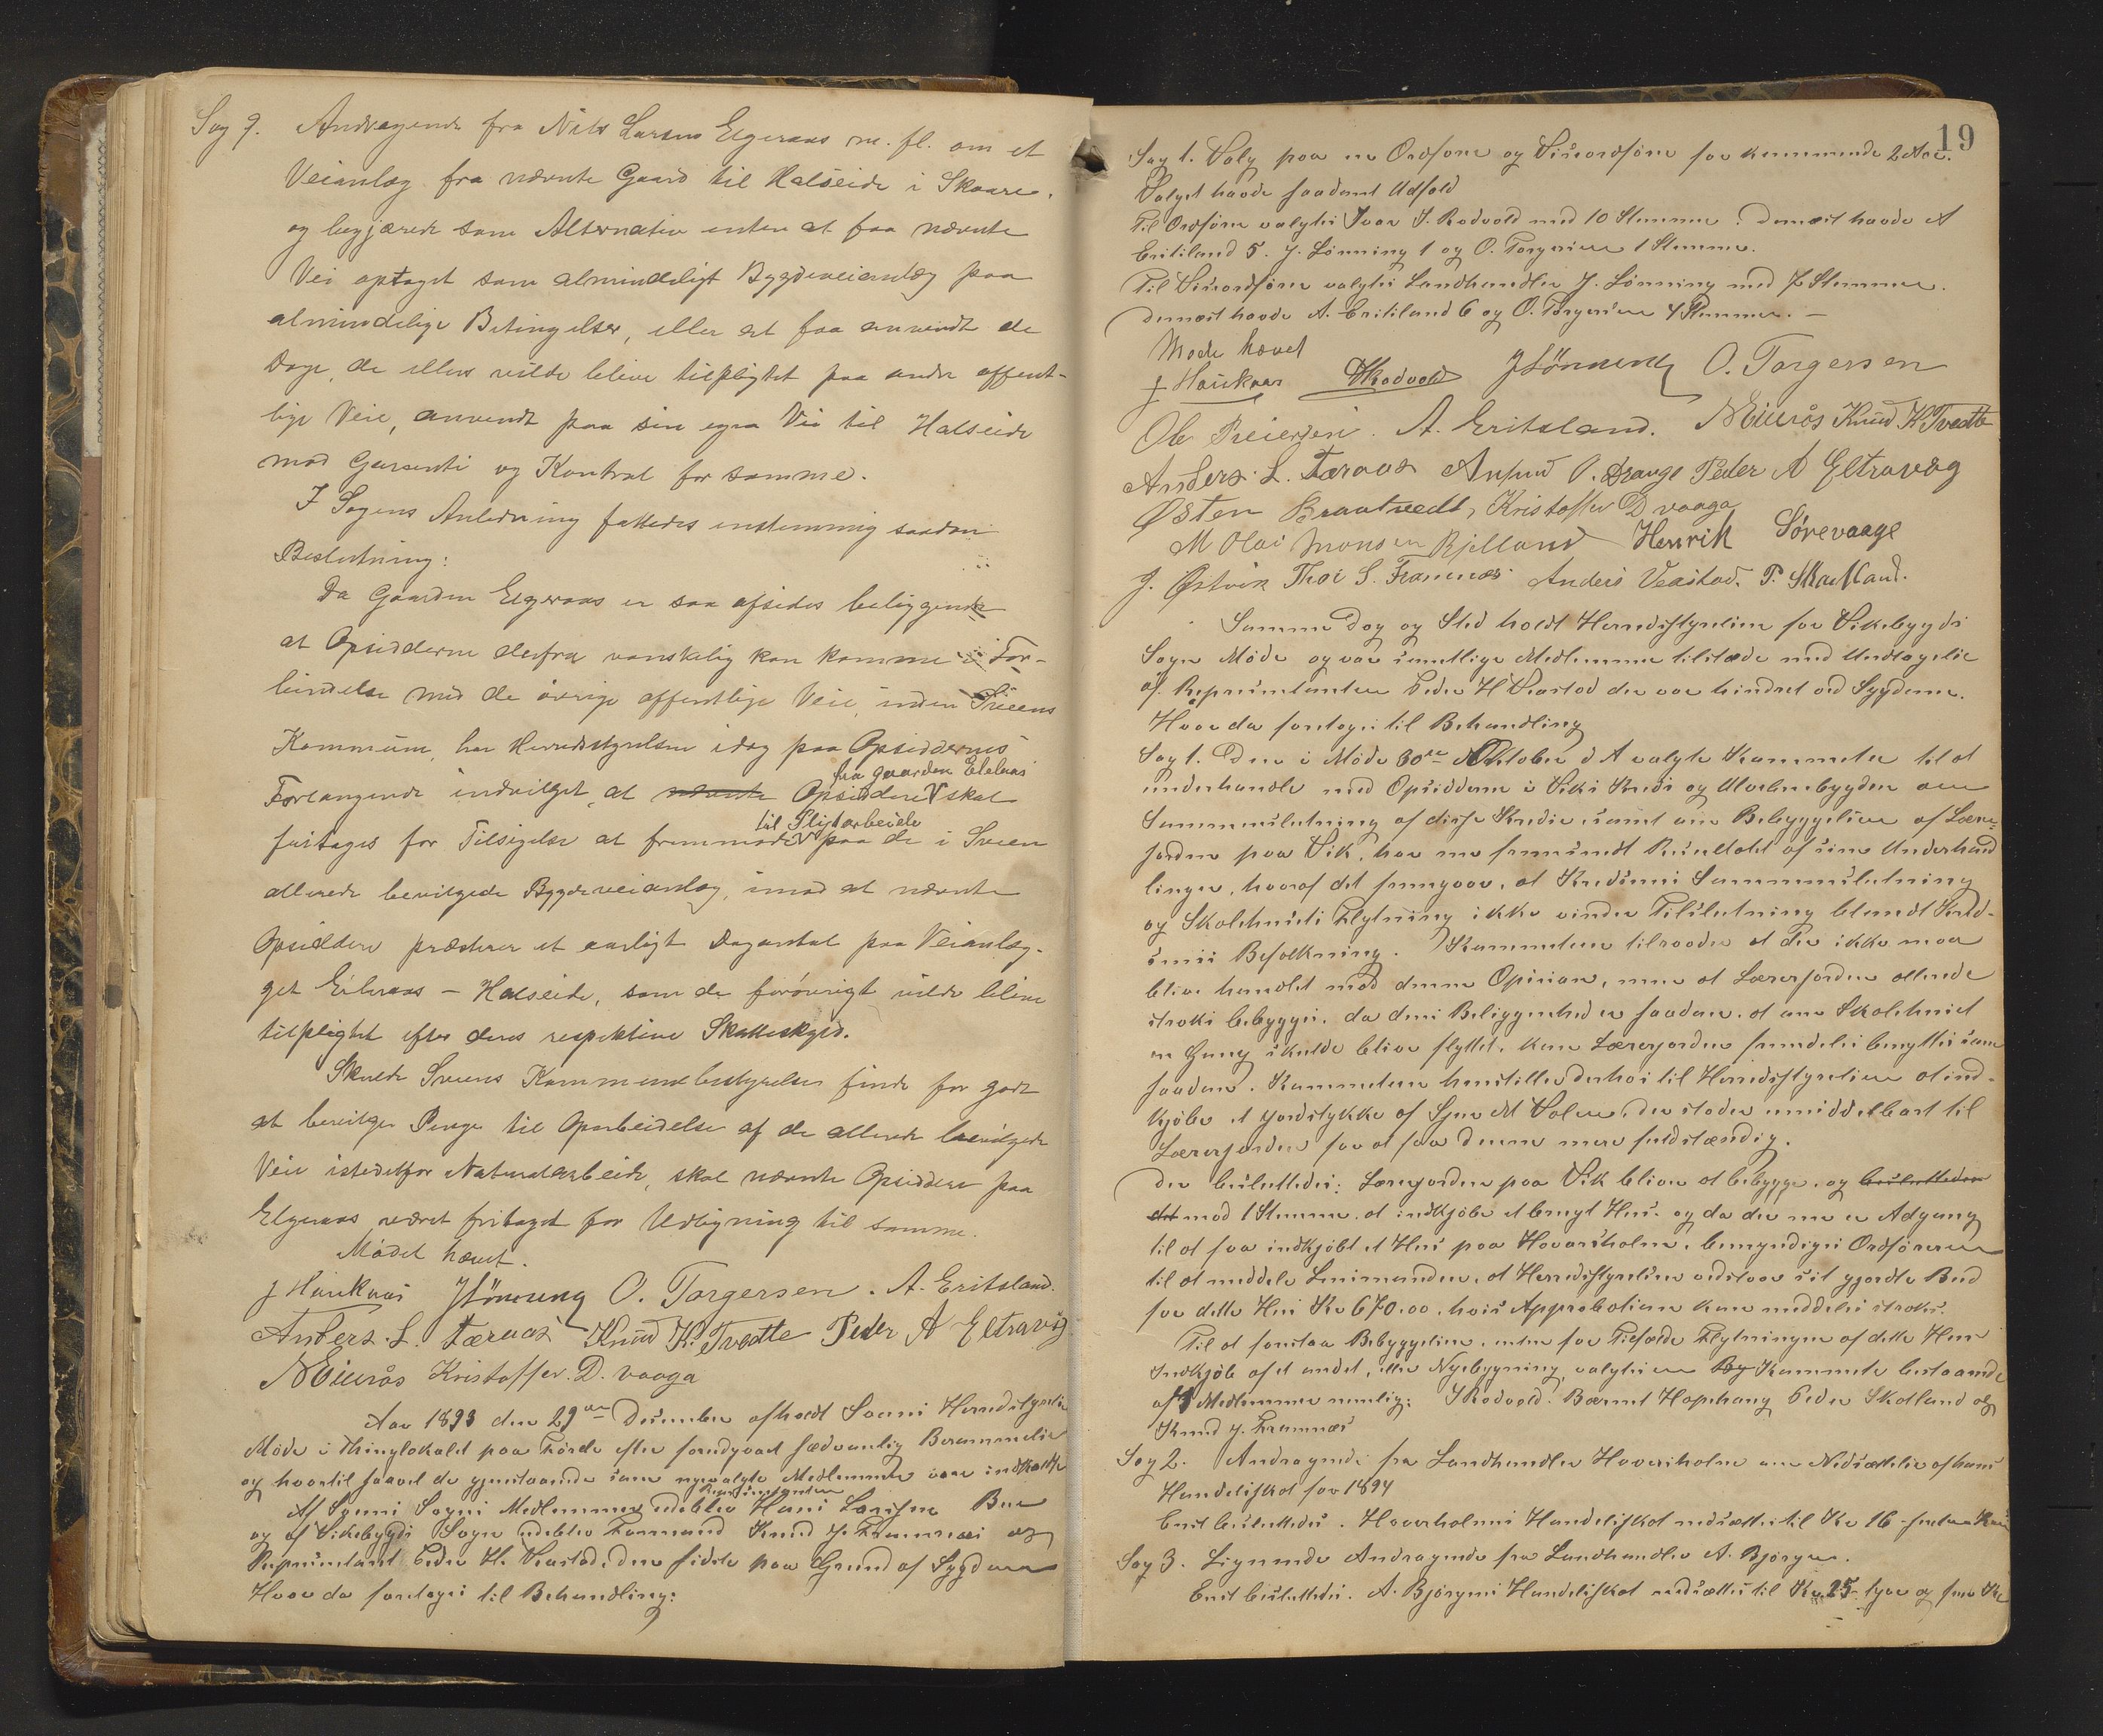 Sag 9. Andragende fra Nils Larsen Elgeraas m. fl. om et
Veianlæg fra nævnte Gaard til Halseide i Skaare,
og begjærede som Alternativ enten at faa nævnte
Vei optaget som almindeligt Bygdeveianlæg paa
almindelige Betingelser, eller at faa anvendt de
Dage, de ellers vilde blive tilpligtet paa andre offent-
lige Veie, anvendt paa sin egen Vei til Halseide
mod Garanti og Kontrol for samme.
I Sagens Anledning fattedes enstemmig saadan
Beslutning:
Da Gaarden Elgeraas er saa afsides beliggende
at Opsidderne derfra vanskelig kan komme i For-
bindelse med de øvrige offentlige Veie, inden Sveens
Kommune, har Herredsstyrelsen idag paa Opsiddernes
fra gaarden Eleraas
Forlangende indvilget, at nævnte Opsiddere V skal
til Pligtarbeide
fritages for Tilsigelse at fremmøde V paa de i Sveen
allerede bevilgede Bygdeveianlæg, imod at nævnte
Opsiddere præsterer et aarligt Dagantal paa Veianlæg-
get Eileraas - Halseide, som de forøvrigt vilde blive
tilpligtet efter deres respektive Skatteskyld.
Skulde Sveens Kommunebestyrelse finde for godt
at bevilge Penge til Oparbeidelse af de allerede bevilgede
Veie istedetfor Naturalarbeide, skal nævnte Opsiddere paa
Elgeraas været fritaget for Udligning til samme.
Mødet hævet.
J Haukaas JLönning O. Torgersen. A. Eritsland.
Anders. L. Færaas Knud K. Tvedte Peder A Eltravåg
NEieraas Kristoffer. D. vaaga
Aar 1893 den 29de December afholdt Sveens Herredsstyrelse
Møde i Thinglokalet paa Førde efter forudgaaet sædvanlig Berammelse
og hvortil saavel de gjenstaaende som nyvalgte Medlemmer vare indkaldte
Repræsentanten
Af Sveens Sogns Medlemmer udeblev Hans Larsen Bue
og af Vikebygds Sogn udeblev Formand Knud J. Framnæs og
Repræsentant Peder H. Veastad, den sidste paa Grund af Sygdom
Hvor da foretoges til Behandling:
19
Sag 1. Valg paa en Ordfører og Viseordfører for kommende 2 Aar.
Valget havde saadant Udfald
Til Ordfører valgtes Ivar J. Rødvold med 10 Stemmer. Dernæst havde A
Eritsland 5. J. Lönning 1 og O. Torgersen 1 Stemme.
Til Viseordfører valgtes Landhandler J. Lönning med 7 Stemmer.
Dernæst havde A. Eritsland 6 og O. Torgersen 4 Stemmer. -
Møde hævet
J Haukaas IRödvold JLönning O. Torgersen
Ole Preiersen. A. Eritsland. NEieraas Knud K Tvedte
Anders. L. Færaas Anfind O. Drange Peder A Eltravåg
Østen Brautvedt, Kristoffer D vaaga
M Olai Monsen Bjelland Henrik Sörevaage
J. Østvik Thor S. Framnæs Anders Veastad. P. Skatland.
Samme Dag og Sted holdt Herredsstyrelsen for Vikebygds
Sogn Møde og var samtlige Medlemmer tilstede med Undtagelse
af Repræsentanten Peder H Veastad der var hindret ved Sygdom.
Hvor da foretoges til Behandling
Sag 1. Den i Møde 30te Oktober d A valgte Kommitte til at
underhandle med Opsidderne i Viks Kreds og Ulvebnebygden om
Sammenslutning af disse Kredse samt om Bebyggelsen af Lærer-
jorden paa Vik, har nu fremsendt Resultatet af sine Underhand
linger, hvoraf det fremgaar, at Kredsens Sammenslutning
og Skolehusets Flytning ikke vinder Tilslutning blandt Kred-
sens Befolkning. Kommitteen tilraader at der ikke maa
blive handlet mod denne Opinion, men at Lærerjorden allerede
straks bebygges, da dens Beliggenhed er saadan, at om Skolehuset
en Gang skulde blive flyttet, kan Lærerjorden fremdeles benyttes som
saadan. Kommitteen henstiller derhos til Herredsstyrelsen at ind-
kjøbe et Jordstykke af Sjur M Valen, der støder umiddelbart til
Lærerjorden for at faa denne mere fuldstændig.
Der besluttedes: Lærerjorden paa Vik bliver at bebygge, og besluttedes
det mod 1 Stemme at indkjøbe et brugt Hus. og da der nu er Adgang
til at faa indkjøbt et Hus paa Hovarsholm, bemyndiges Ordføreren
til at meddele Lensmanden, at Herredsstyrelsen vedstaar sit gjorte Bud
for dette Hus Kr 670.00. hvis Approbation kan meddeles straks.
Til at forestaa Bebyggelsen, enten for Tilfælde Flytningen af dette Hus
Indkjøb af et andet, eller Nybygning, valgtes en By Kommite bestaaende
af 4 Medlemmer nemlig: IRødvold. Bærent Hopshaug Peder Skatland og
Knud J. Framnæs
Sag 2. Andragende fra Landhandler Hovarsholm om Nedsættelse af hans
Handelsskat for 1894
Enst besluttedes. Hovarsholms Handelsskat nedsættes til Kr 16 - sexten Kron
Sag 3. Lignende Andragende fra Landhandler A. Bjørgen.
Enst besluttedes. A. Bjørgens Handelsskat nedsættes til Kr 25 - tyve og fem Kr